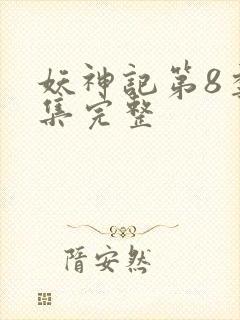 妖神記第8季
集完整
隋安然